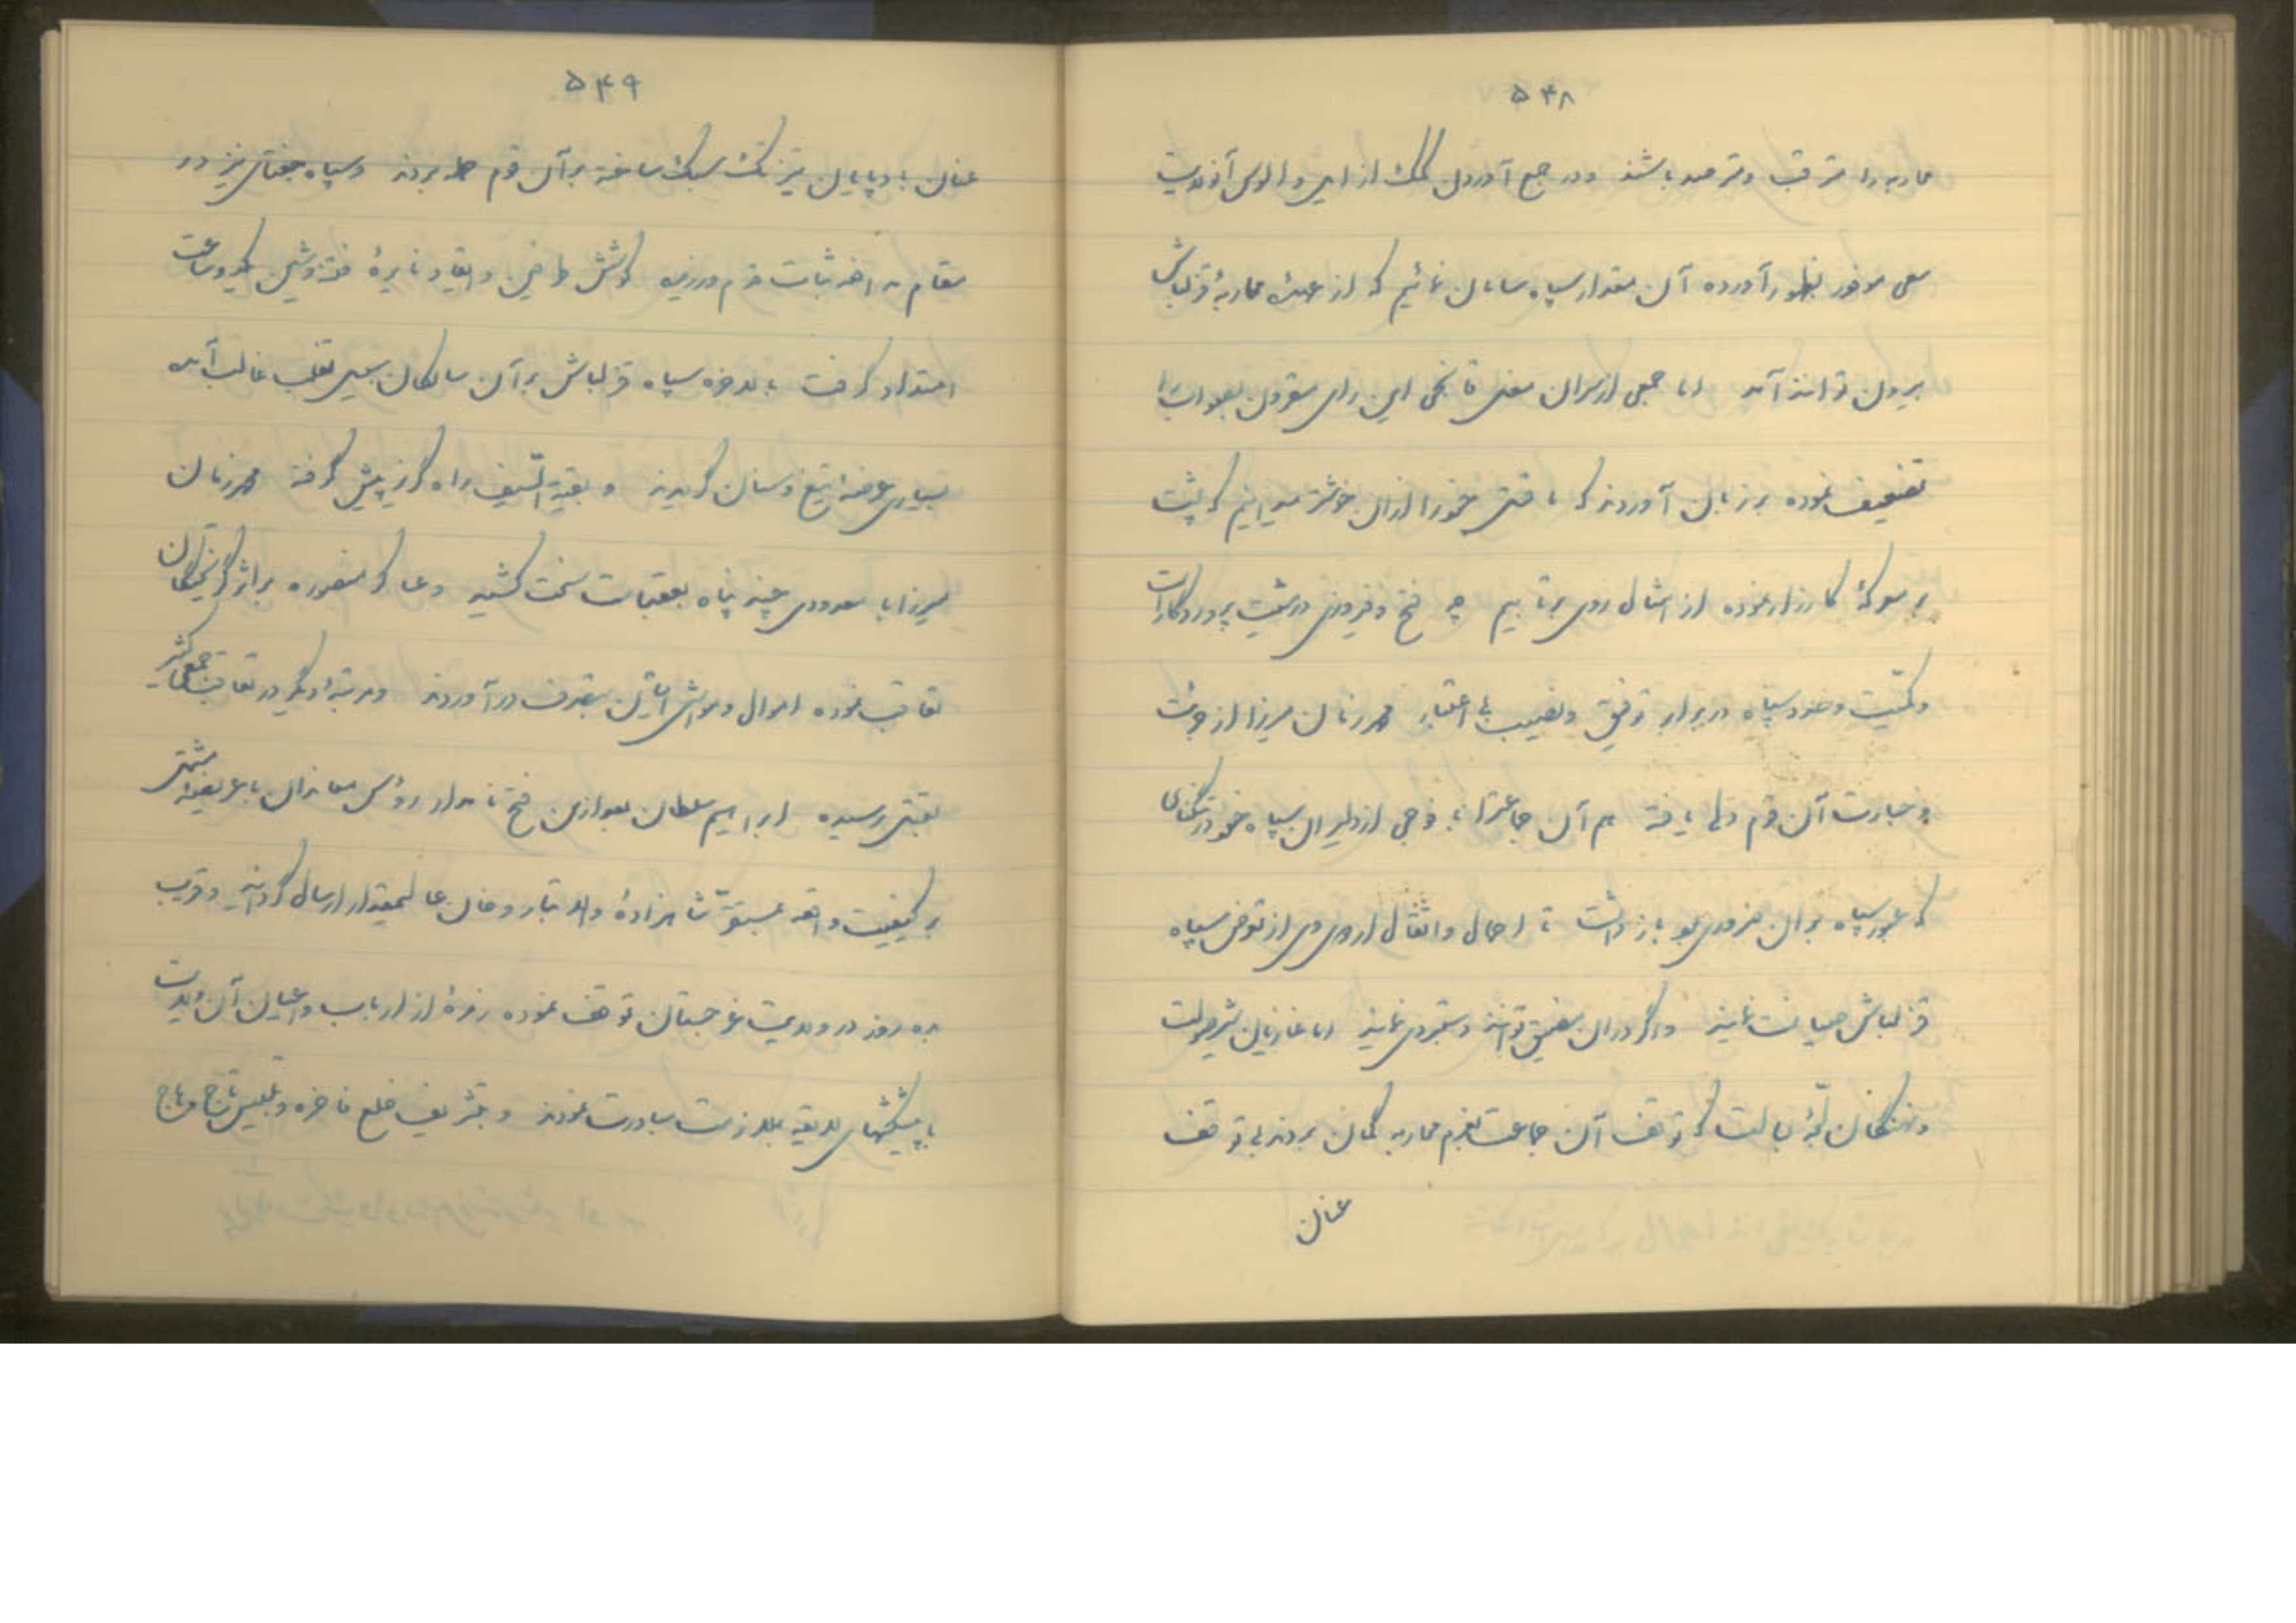 ۵۴۸
محاربه را مترقب و مترصد باشند و در جمع آوردن کمک از ایل و الوس آنولایت
سعی موفور بظهور آورده آن مقدار سپاه سامان نمائیم که از عهدهٔ محاربهٔ قزلباش
بیرون توانند آمد اما جمعی از سران سخن قانچی این رای مقرون بصواب را
تضعیف نموده بر زبان آوردند که ما قتل خود را از آن خوشتر میدانیم که پشت
بر معرکهٔ کارزار نموده از امثال روی برتابیم چه فتح و فیروزی در مشیت پروردگار است
و کمیت و عدد سپاه در برابر توفیق و نصیب بی اعتبار محمدزمان میرزا از جرئت
و جسارت آن قوم دلی یافته هم آن جماعترا با فوجی از دلیران سپاه خود در تنگنای
که عبور سپاه بر آن ضروری بود بازداشت تا احمال و اثقال اردوی وی از تعرض سپاه
قزلباش صیانت نمایند و اگر در آن مضیق توانند دستبردی نمایند اما غازیان شیر صولت
و نهنگان لجهٔ بسالت که توقف آن جماعت بعزم محاربه گمان بردند بی توقف
عنان
۵۴۹
عنان بادپایان تیز تک سبک ساخته بر آن قوم حمله بردند و سپاه جغتای نیز در
مقام مدافعه ثبات قدم ورزیده کوشش طرفین و ایقاد نایرهٔ فتنه و شین یکدو ساعت
امتداد گرفت بالاخره سپاه قزلباش بر آن سالکان سبیل تغلب غالب آمده
بسیاری عرضهٔ تیغ و سنان گردیدند و بقیة السیف راه گریز پیش گرفته محمدزمان
میرزا با معدودی چند پناه بعقبات سخت کشید و عساکر منصوره بر اثر گریختگان
تعاقب نموده اموال و مواشی ایشان بتصرف درآوردند و مرتبهٔ دیگر در تعاقب جمعی کثیر
بقتل رسیده ابراهیم سلطان بعد از این فتح نامدار رؤس معاندان با عریضهٔ مشتمل
بر کیفیت واقعه بمستقر شاهزادهٔ والاتبار و خان عالیمقدار ارسال گردانید و قریب
ده روز در ولایت غرجستان توقف نموده زمرهٔ از ارباب و اعیان آن ولایت
با پیشکشهای لایقه بملازمت مبادرت نمودند و بتشریف خلع فاخره و تلبیس تاج و هاج